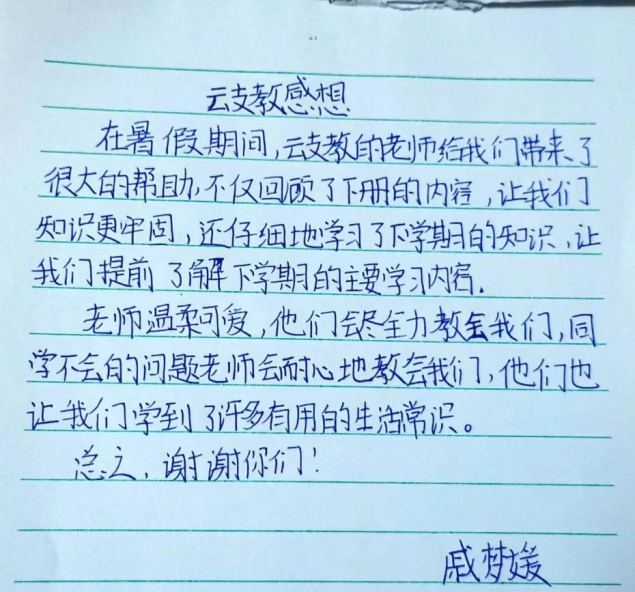 云支教感想
在暑假期间,云支教的老师给我们带来了
很大的帮助,不仅回顾了下册的内容,让我们
知识更牢固,还仔细地学习了下学期的知识,让
我们提前了解下学期的主要学习内容.
老师温柔可爱,他们会尽全力教会我们,同
学不会的问题老师会耐心地教会我们,他们也
让我们学到了许多有用的生活常识。
总之,谢谢你们!
戚梦媛